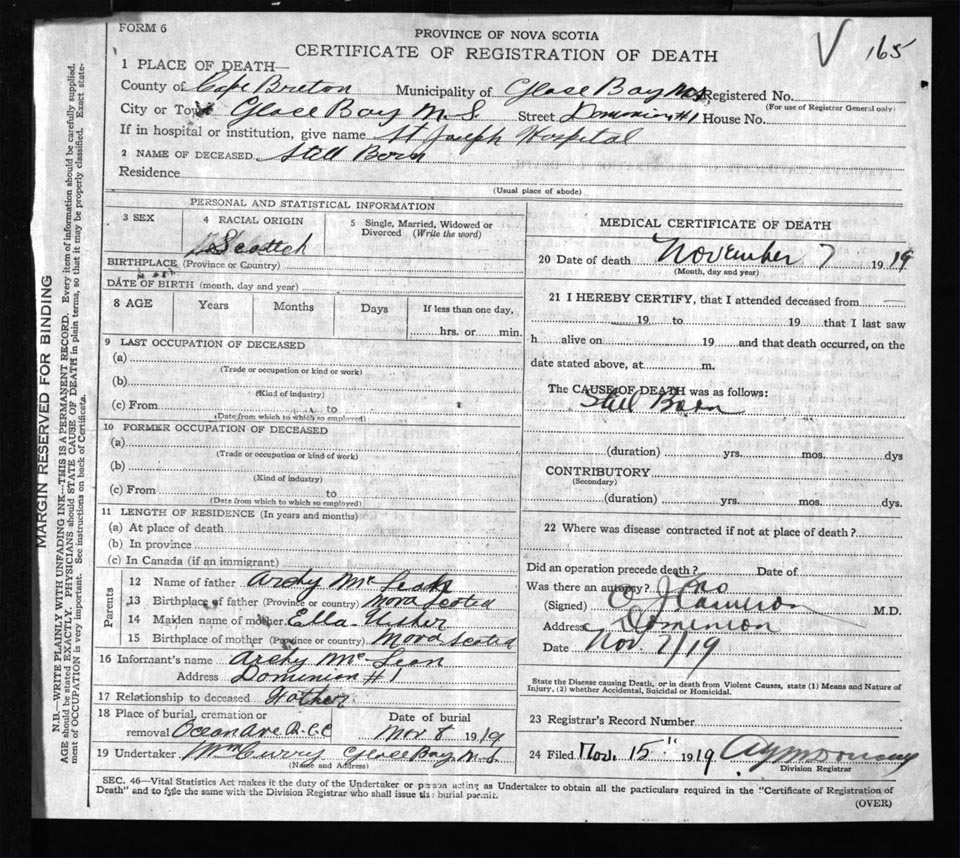 FORM 6
PROVINCE OF NOVA SCOTIA
CERTIFICATE OF REGISTRATION OF DEATH
165
1 PLACE OF DEATH—
County of Cape Breton Municipality of Glace Bay N.S. Registered No.
(For use of Registrar General only)
City or Town Glace Bay N.S Street Dominion #1 House No.
If in hospital or institution, give name St Joseph Hospital
2 NAME OF DECEASED Still Born
Residence
(Usual place of abode)
PERSONAL AND STATISTICAL INFORMATION
3 SEX
4 RACIAL ORIGIN
Scottch
5 Single, Married, Widowed or Divorced (Write the word)
BIRTHPLACE (Province or Country)
DATE OF BIRTH (month, day and year)
8 AGE Years Months Days If less than one day,
hrs. or min.
9 LAST OCCUPATION OF DECEASED
(a)
(Trade or occupation or kind or work)
(b)
(Kind of industry)
(c) From to
(Date from which to which so employed)
10 FORMER OCCUPATION OF DECEASED
(a)
(Trade or occupation or kind of work)
(b)
(Kind of industry)
(c) From to
(Date from which to which so employed)
11 LENGTH OF RESIDENCE (In years and months)
(a) At place of death
(b) In province
(c) In Canada (if an immigrant)
Parents
12 Name of father Archy McLean
13 Birthplace of father (Province or country) Nova Scotia
14 Maiden name of mother Ella
15 Birthplace of mother (Province or country) Nova Scotia
16 Informant's name Archy McLean
Address Dominion #1
17 Relationship to deceased Father
18 Place of burial, cremation or removal Ocean Ave R.C.C
Date of burial Nov 8 1919
19 Undertaker Wm Curry Glace Bay N.S.
(Name and Address)
MEDICAL CERTIFICATE OF DEATH
20 Date of death November 7 1919
(Month, day and year)
21 I HEREBY CERTIFY, that I attended deceased from
19 to 19 that I last saw
h alive on 19 and that death occurred, on the
date stated above, at m.
The CAUSE OF DEATH was as follows:
Still Born
(duration) yrs. mos. dys
CONTRIBUTORY
(Secondary)
(duration) yrs. mos. dys.
22 Where was disease contracted if not at place of death?
Did an operation precede death? Date of
Was there an autopsy? no
(Signed) Cameron M.D.
Address Dominion
Date Nov 7/19
State the Disease causing Death, or in death from Violent Causes, state (1) Means and Nature of
Injury, (2) whether Accidental, Suicidal or Homicidal.
23 Registrar's Record Number
24 Filed Nov. 15" 1919
Division Registrar
SEC. 46—Vital Statistics Act makes it the duty of the Undertaker or person acting as Undertaker to obtain all the particulars required in the "Certificate of Registration of
Death" and to fyle the same with the Division Registrar who shall issue the burial permit.
(OVER)
MARGIN RESERVED FOR BINDING
N.B.—WRITE PLAINLY WITH UNFADING INK—THIS IS A PERMANENT RECORD. Every item of information should be carefully supplied.
AGE should be stated EXACTLY. PHYSICIANS should STATE CAUSE OF DEATH in plain terms, so that it may be properly classified. Exact state-
ment of OCCUPATION is very important. See instructions on back of Certificate.